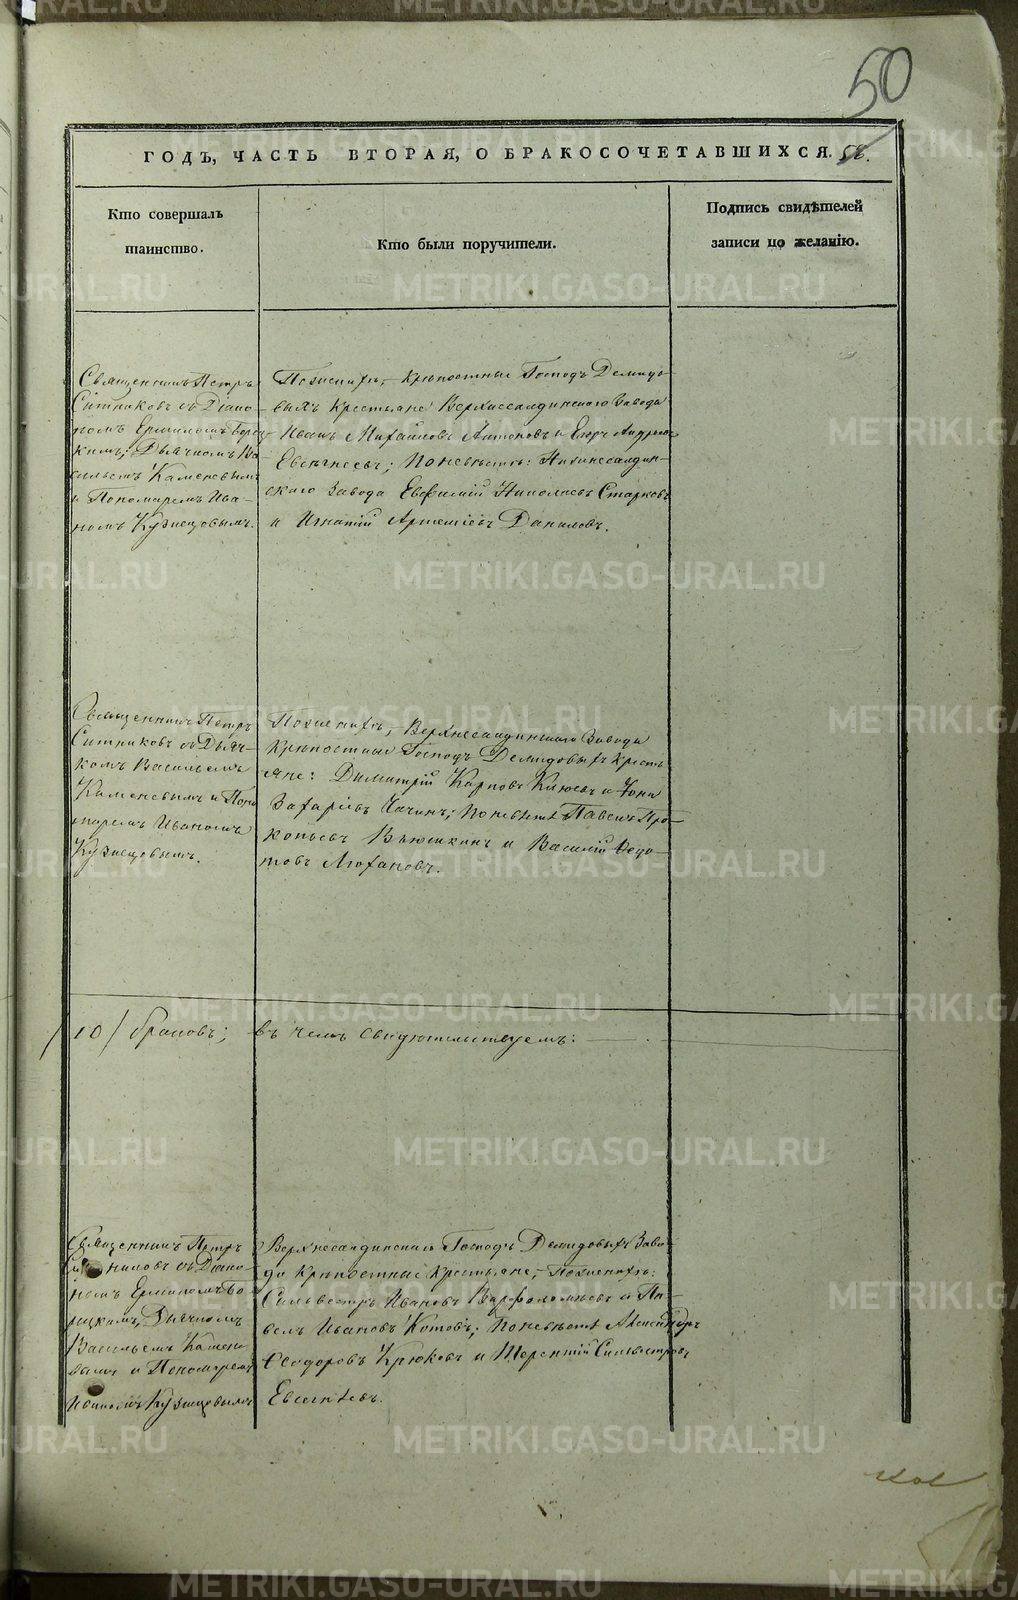 50
ГОДЪ, ЧАСТЬ ВТОРАЯ, О БРАКОСОЧЕТАВШИХСЯ.
Кто совершалъ таинство.
Кто были поручители.
Подпись свидѣтелей записи по желанію.
Священникъ Петръ
Ситниковъ съ Діако-
номъ Ермиломъ Борец-
кимъ, Дьячкомъ Ва-
сильемъ Каменевымъ
и Пономаремъ Ива-
номъ Кузнецовымъ.
По женихѣ, крѣпостные Господъ Демидо-
выхъ крестьяне Верхнесалдинскаго Завода
Иванъ Михайловъ Антоновъ и Егоръ Андреевъ
Евсѣгнеевъ; По невѣстѣ: Нижнесалдин-
скаго Завода Евфимій Николаевъ Старковъ
и Игнатій Артеміевъ Даниловъ.
Священникъ Петръ
Ситниковъ съ Дьяч-
комъ Васильемъ
Каменевымъ и Поно-
маремъ Иваномъ
Кузнецовымъ.
По женихѣ, Верхнесалдинскаго Завода
крѣпостные Господъ Демидовыхъ кресть-
яне: Димитрій Карповъ Клюевъ и Іона
Захаріевъ Чачинъ; По невѣстѣ Павелъ Про-
копьевъ Вьюшкинъ и Василій Федо-
товъ Лохановъ.
/10/ браковъ; въ чемъ свидѣтельствуемъ:
Священникъ Петръ
Ситниковъ съ Діако-
номъ Ермиломъ Бо-
рецкимъ, Дьячкомъ
Васильемъ Камене-
вымъ и Пономаремъ
Иваномъ Кузнецовымъ
Верхнесалдинскаго Господъ Демидовыхъ Заво-
да крѣпостные крестьяне, По женихѣ:
Сильвестръ Ивановъ Варфоломѣевъ и Па-
велъ Ивановъ Котовъ; По невѣстѣ Александръ
Ѳеодоровъ Крюковъ и Терентій Сильвестровъ
Евсегнѣевъ.
METRIKI.GASO-URAL.RU